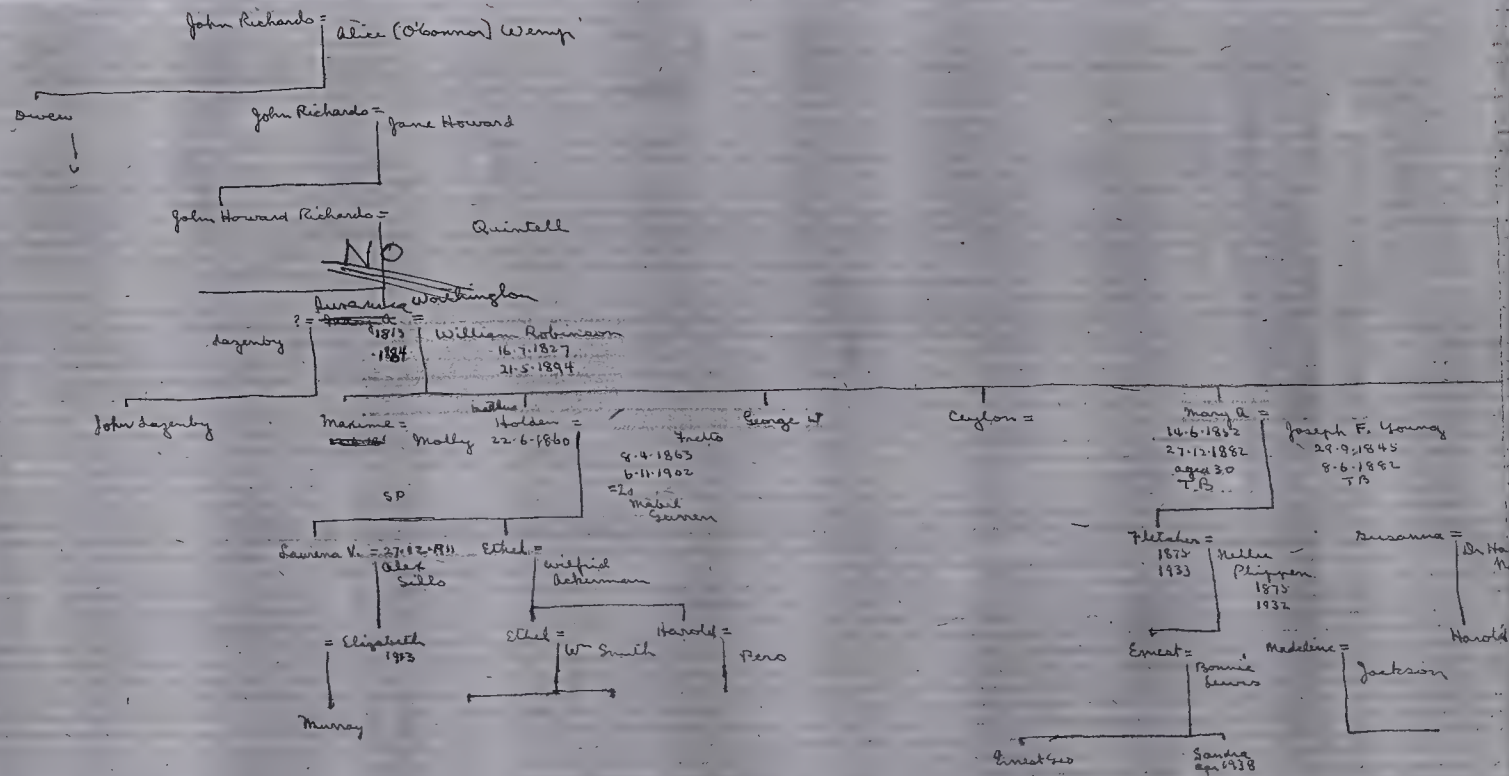 John Richards =
Alice (O'Connor) Wemp
Owen
John Richards =
Jane Howard
John Howard Richards =
Quintell
NO
Susanna Worthington
? =
=
Lazenby
1884
William Robinson
16.7.1827
21.5.1894
John Lazenby
Maxime =
Molly
SP
Holden =
22.6.1860
8.4.1863
6.11.1902
Mabel
George W
Ceylon =
Mary A =
14.6.1852
27.12.1882
aged 30
T.B.
Joseph F. Young
29.9.1845
8.6.1882
TB
Laurena V. =
Alex
Sills
Ethel =
Wilfrid
Ackerman
Fletcher =
1875
1933
Nellie
Phippen
1875
1932
Susanna =
Dr Ha
= Elizabeth
1913
Ethel =
Wm Smith
Harold =
Pero
Harold
Ernest =
Bonnie
Lewis
Madeline =
Jackson
Murray
Ernest Geo
Sandra
Apr 1938